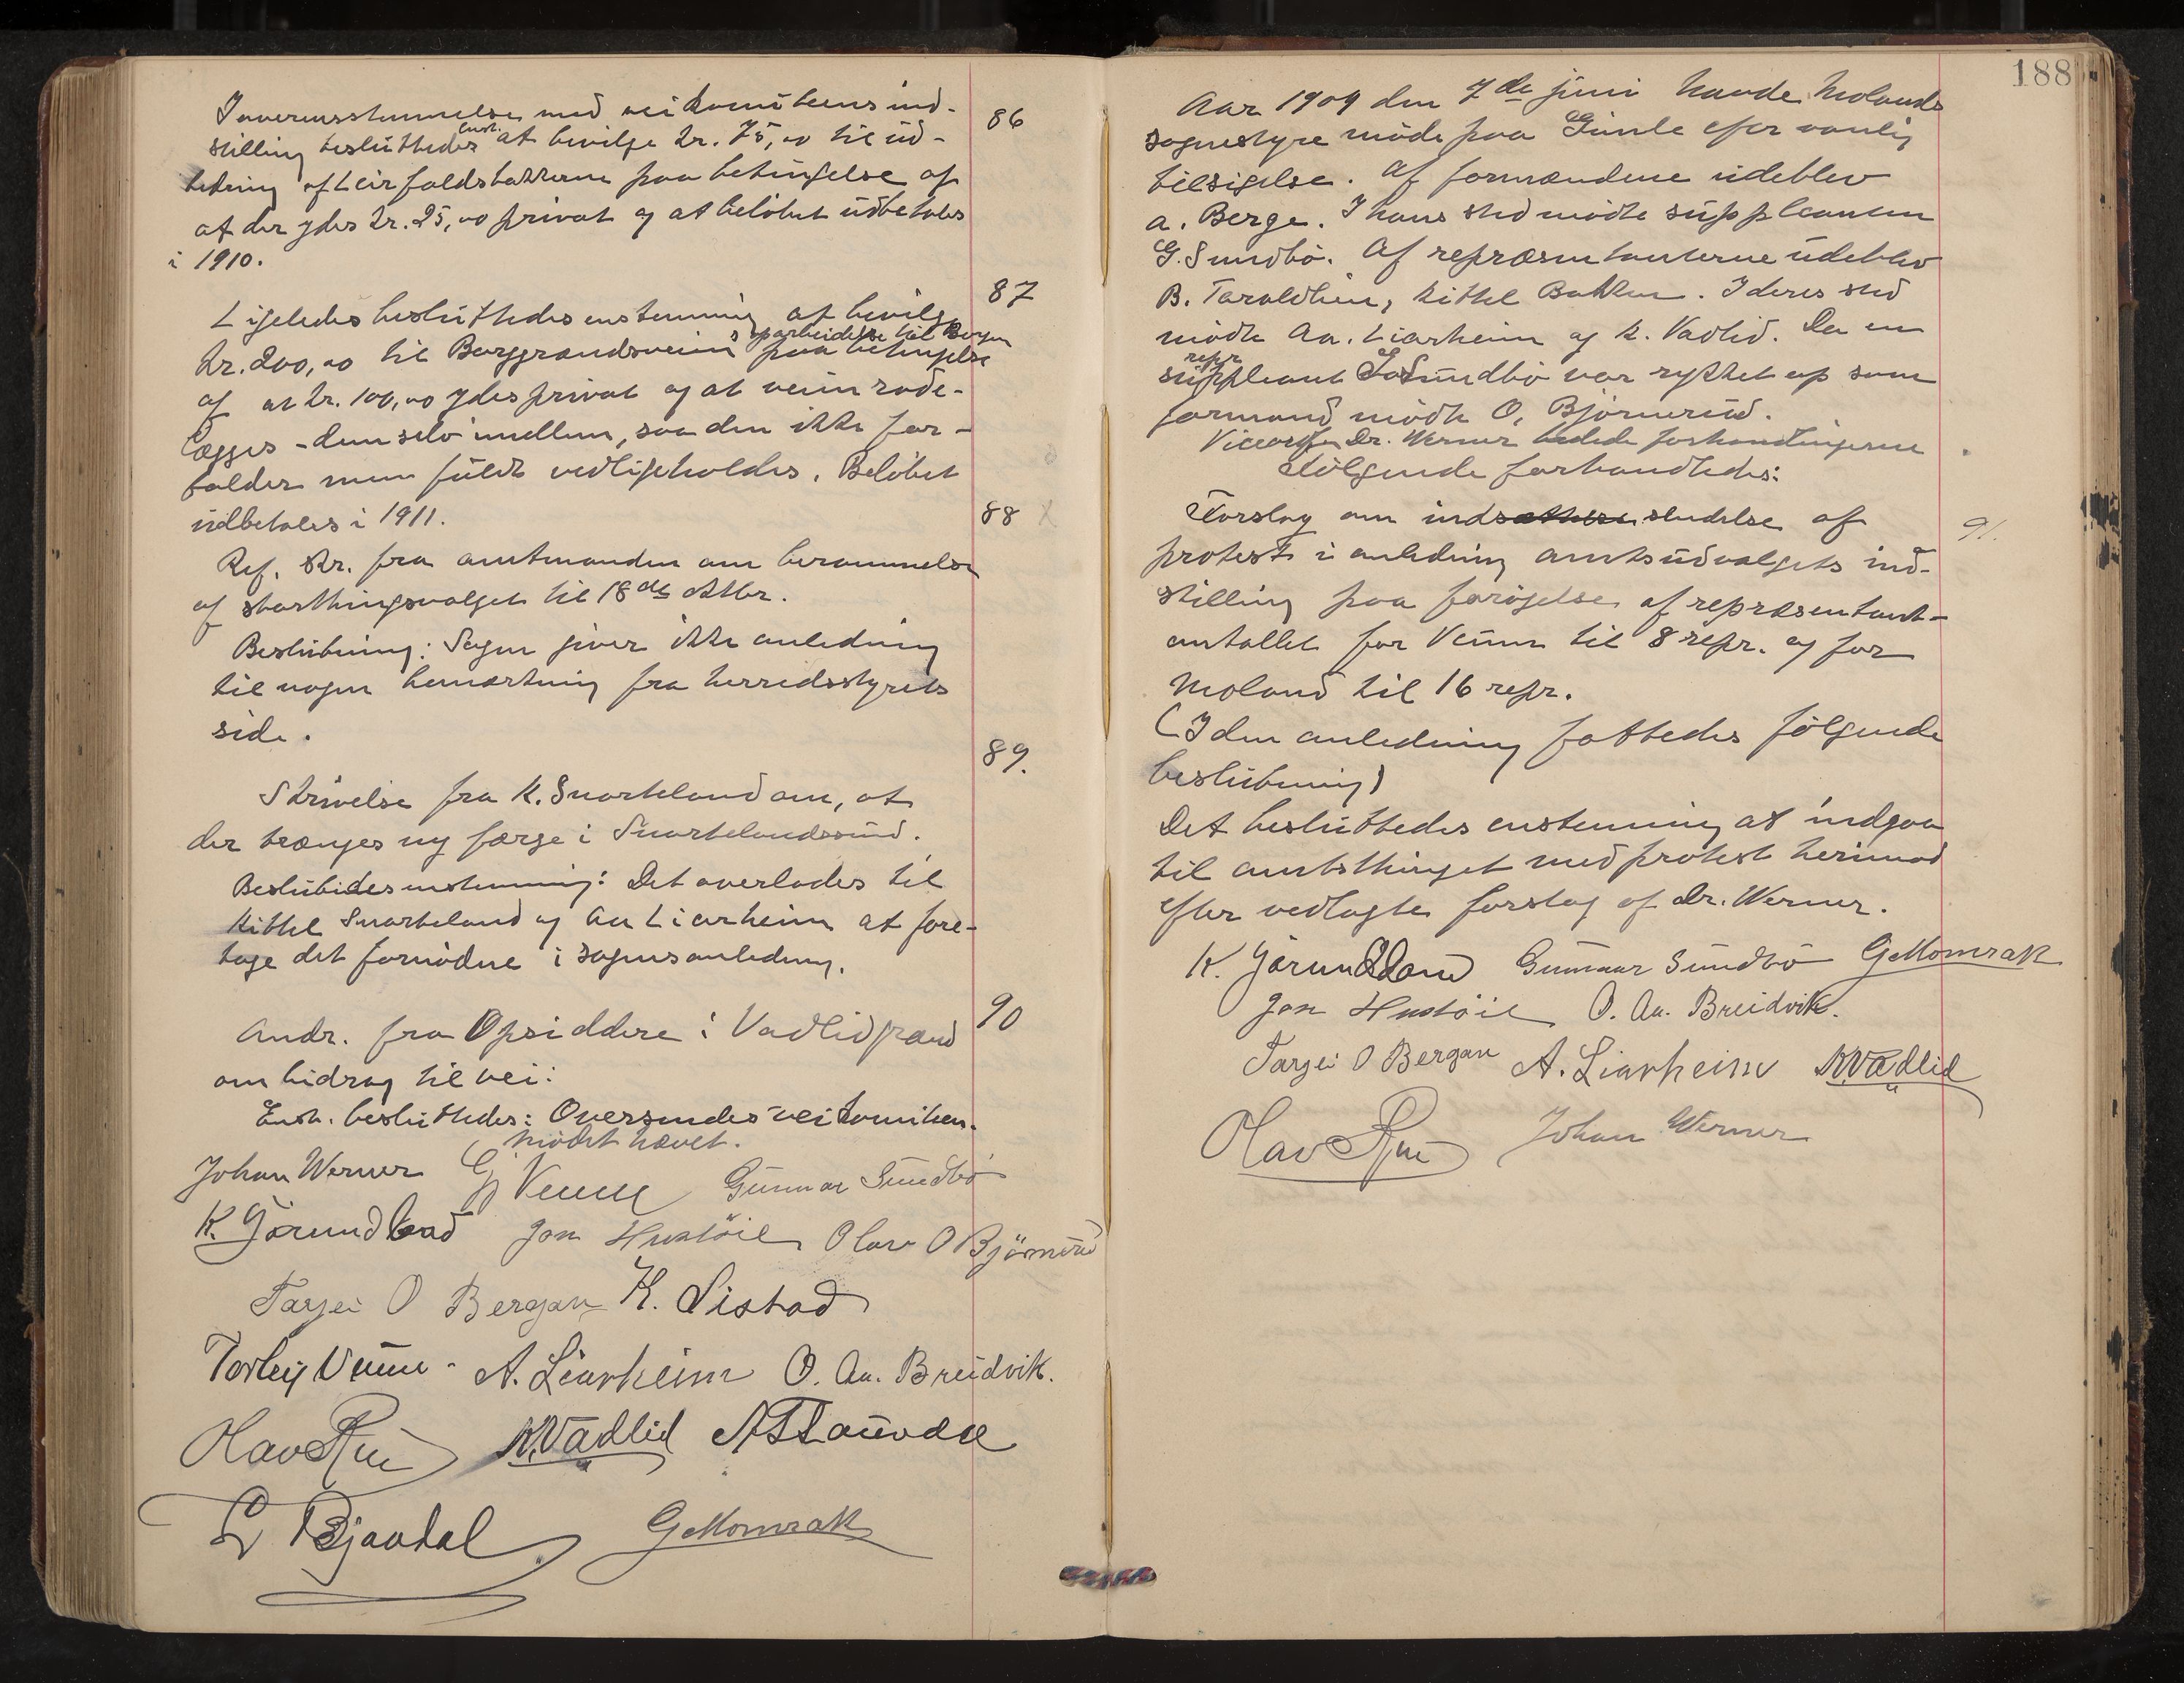 86
I overensstemmelse med veikomiteens ind-
stilling besluttedes enst. at bevilge kr. 75,00 til ud-
bedring af Leirfaldsbakkerne paa betingelse af
at der ydes kr. 25,00 privat og at beløbet udbetales
i 1910.
87
Ligeledes besluttedes enstemmig at bevilge
kr. 200,00 til Berggrændsveiens oparbeidelse til Bergen paa betingelse
af at kr. 100,00 ydes privat og at veien rode-
lægges - dem selv imellem, saa den ikke for-
falder men fuldt vedligeholdes. Beløbet
udbetales i 1911.
88
Ref. skr. fra amtmanden om berammelse
af storthingsvalget til 18de oktbr.
Beslutning: Sagen giver ikke anledning
til nogen bemærkning fra herredsstyrets
side.
89.
Skrivelse fra K. Snarteland om, at
der trænges ny færge i Snartelandssund.
Beslutedes enstemmig: Det overlades til
Kittel Snarteland og Au Liarheim at fore-
tage det fornødne i sagens anledning.
90
Andr. fra Opsiddere i Vadlidgrænd
om bidrag til vei:
Enst. besluttedes: Oversendes veikomiteen.
Mødet hævet.
Johan Werner G Veum Gunnar Sundbø
K. Jørundland Jon Hustøil Olav O Bjørnerud
Tarjei O Bergan K. Listad
Torleij Veum - A. Liarheim O. Au. Breidvik.
Olav Rui K. Vadlid
Bjaadal G Momrak
188
Aar 1909 den 7de juni havde Molands
sognestyre møde paa Gimle efter vanlig
tilsigelse. Af formændene udeblev
A. Berge. I hans sted mødte suppleanten
G. Sundbø. Af repræsentanterne udeblev
B. Taraldlien, Kittel Bakken. I deres sted
mødte Au. Liarheim og K. Vadlid. Da en
repr suppleant G Sundbø var rykket op som
formand mødte O. Bjørnerud.
Viceordf. Dr. Werner ledede forhandlingerne
Følgende forhandledes:
91.
Forslag om indsendelse af
protest i anledning amtsudvalgets ind-
stilling paa forøgelse af repræsentant-
antallet for Veum til 8 repr. og for
Moland til 16 repr.
(I den anledning fattedes følgende
beslutning)
Det besluttedes enstemmig at indgaa
til amtsthinget med protest herimod
efter vedlagte forslag af Dr. Werner.
K. Jørundland Gunnar Sundbø G Momrak
Jon Hustøil O. Au. Breidvik.
Tarjei O Bergan A. Liarheim K. Vadlid
Olav Rui Johan Werner